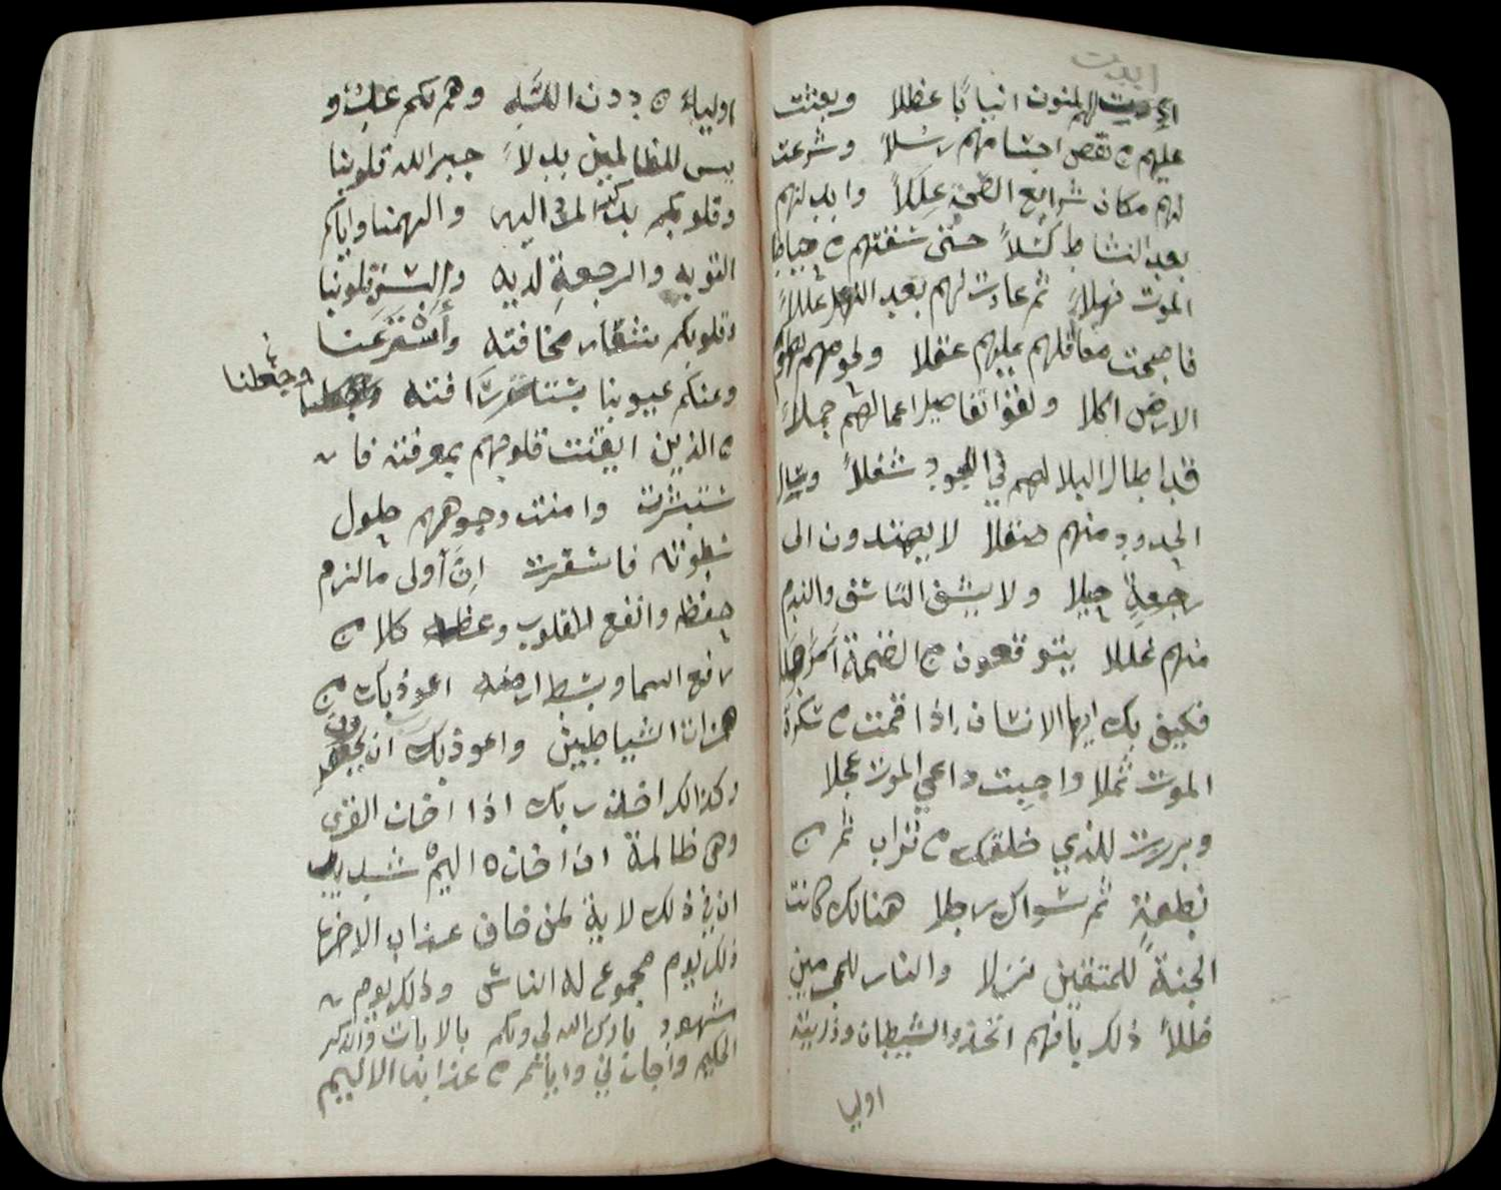 ابدت
ابدت لهم المنون انيابا عظلا وبعثت
عليهم من نقص اجسامهم رسلاً وشرعت
لهم مكان شرايع الصحة عللاً وابدلتهم
بعد النشاط كسلاً حتى سقتهم من حياط
الموت نهلاً ثم عادت لهم بعد النهل عللاً
فاصبحت معاقلهم عليهم عقلا ولحومهم لهوام
الارض اكلا ولقوا تفاصيل اعمالهم جملاً
قد اطال البلا لهم في اللحود شغلاً وسال
الخدود منهم صقلا لا يهتدون الى
رجعة حيلا ولا يشف التاسف والندم
منهم غللا يتوقعون من الضمة امرا جللا
فكيف بك ايها الانسان اذا قمت من سكرة
الموت ثملا واجبت داعي الموت عجلا
وبررت للذي خلقك من تراب ثم من
نطفة ثم سواك رجلا هنالك كانت
الجنة للمتقين نزلا والنار للمجرمين
ظللاً ذلك بانهم اتخذوا الشيطان وذريته
اوليا
اولياء من دون الله وهم لكم عدو
بيس للظالمين بدلاً جبر الله قلوبنا
وقلوبكم بد المرد اليه والهمنا واياكم
التوبه والرجعة لديه والبس قلوبنا
وقلوبكم شعار مخافته وأستر عنا
وعنكم عيوبنا بستار رافته
وجعلنا
من الذين ايقنت قلوبهم بمعرفته فا
ستبشرت وامنت وجوههم حلول
سطوته فاسفرت إنَّ أولى ما لزم
حفظه وانفع للقلوب وعظه كلام من
رافع السما وبسط ارضه اعوذ بك من
همزات الشياطين واعوذ بك ان يحضرون
وكذالك اخذ ربك اذا اخذ القرى
وهي ظالمة ان اخذه اليم شديد
ان في ذلك لاية لمن خاف عذاب الاخرة
ذلك يوم مجموع له الناس وذلك يوم
مشهود بارك الله لي ولكم بالايات والذكر
الحكيم واجارني واياكم من عذابه الاليم